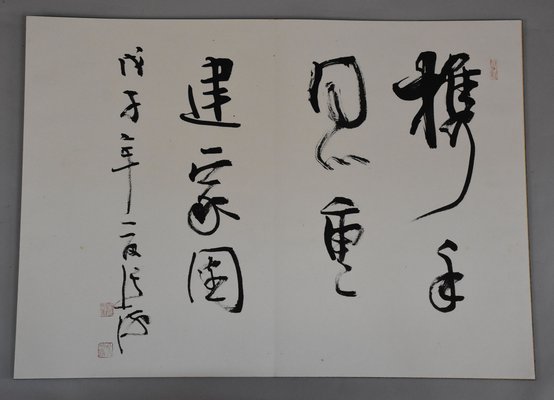 携手
同心重
建家园
戊子年张海